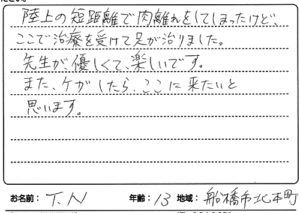 陸上の短距離で肉離れをしてしまったけど、
ここで治療を受けて足が治りました。
先生が優しくて、楽しいです。
また、ケガしたら、ここに来たいと
思います。
お名前: T.N 年齢: 13 地域: 船橋市北本町